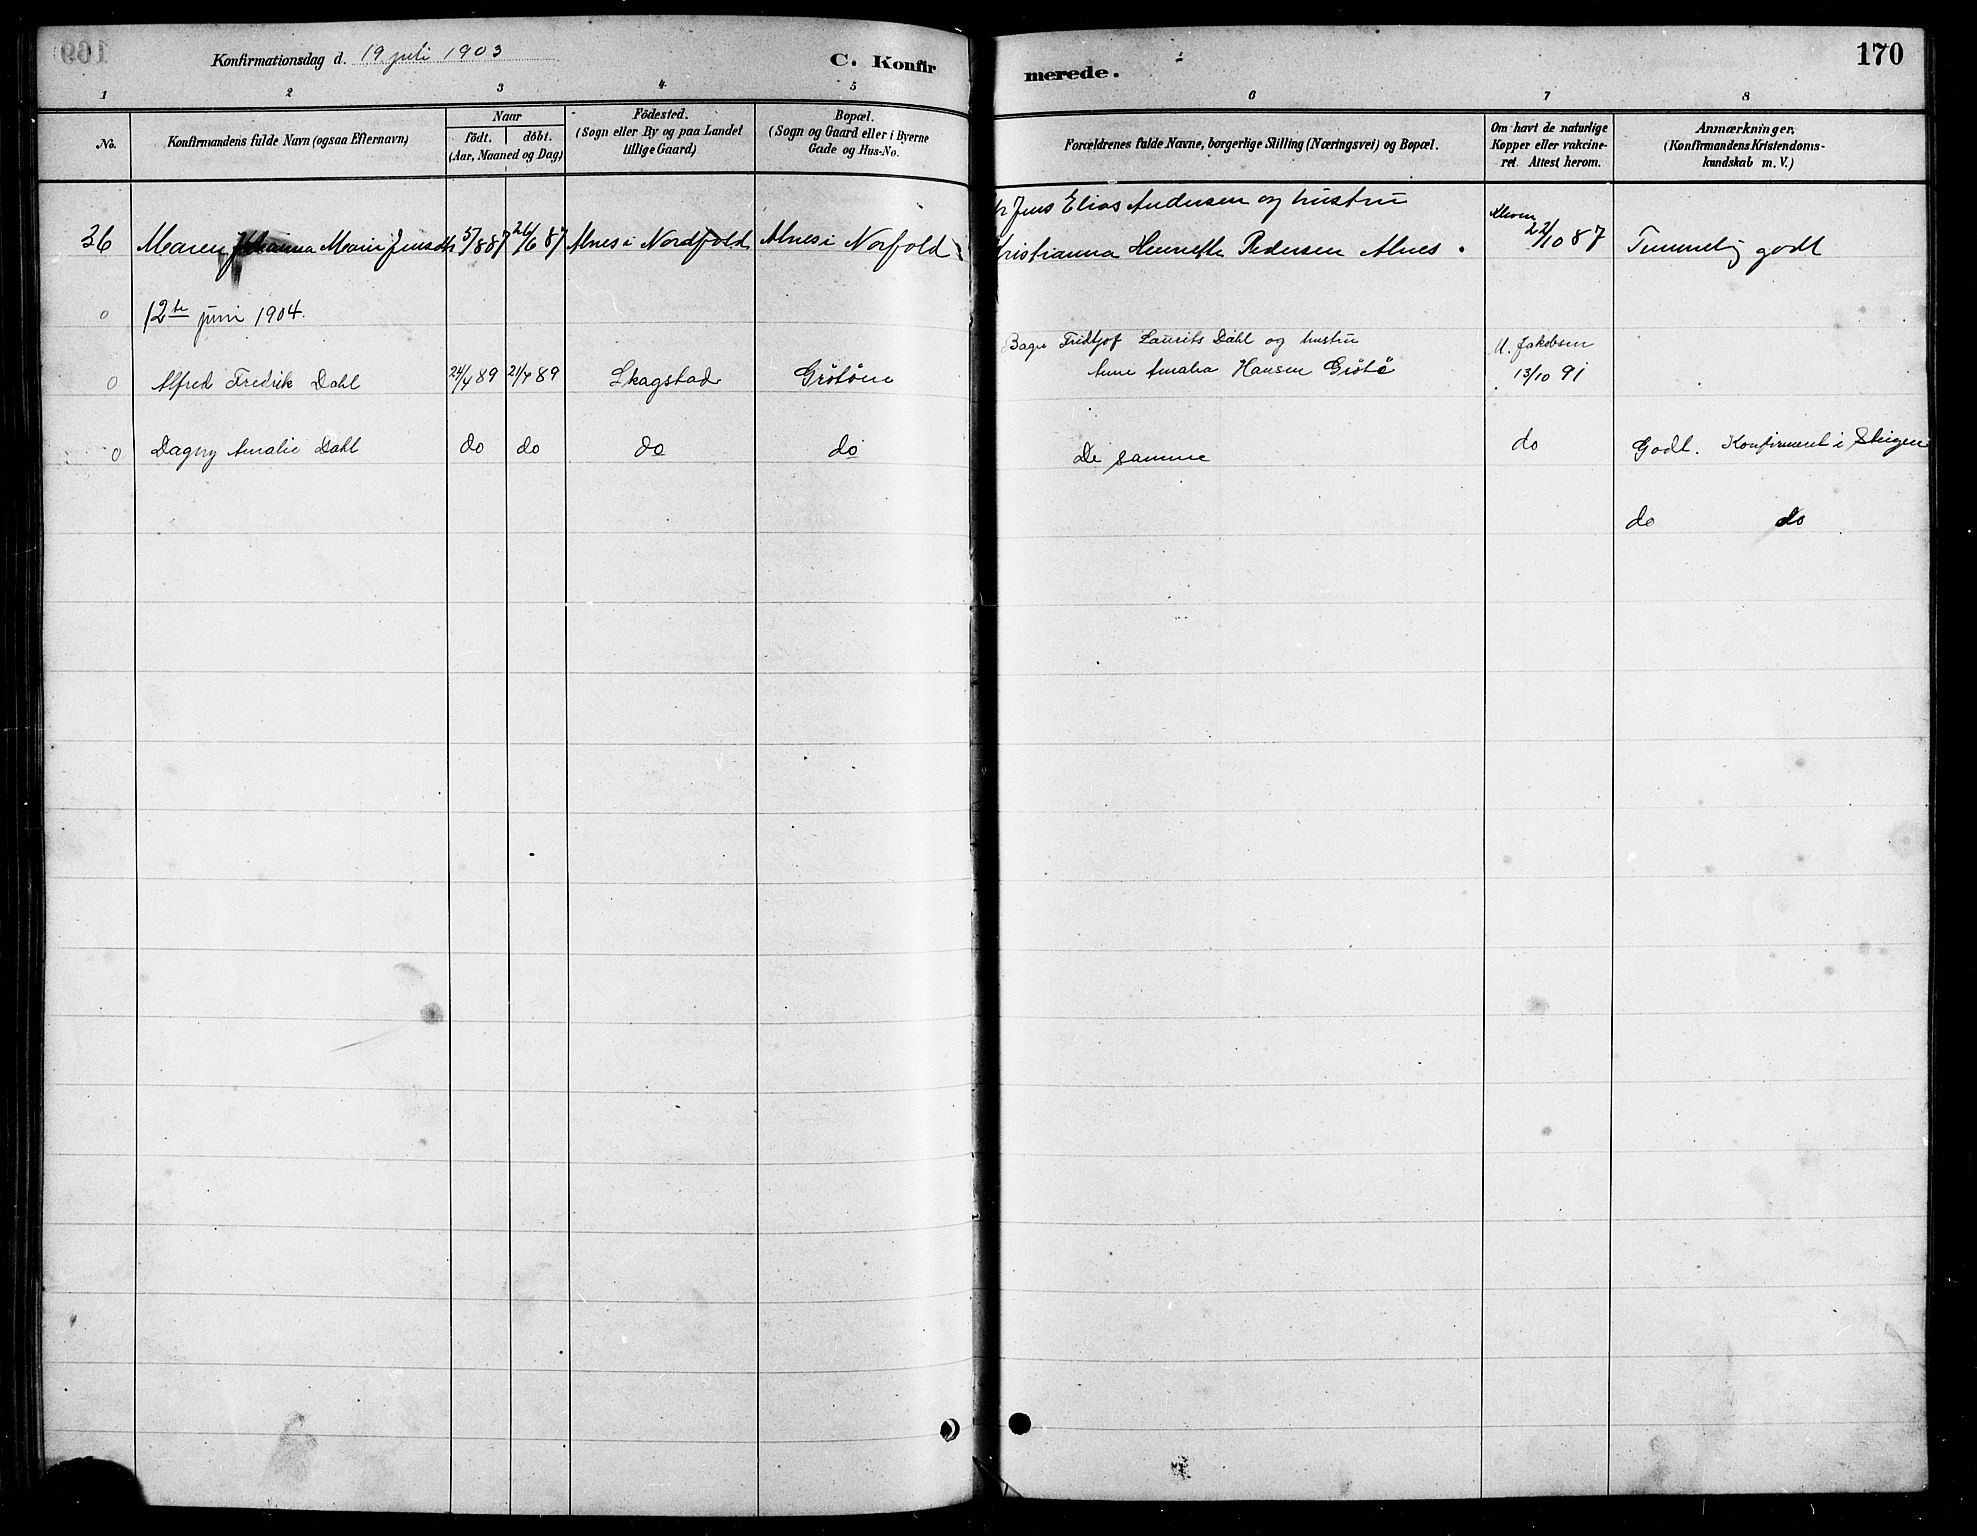 169
Konfirmationsdag d. 19 juli 1903
C. Konfir
merede.
170
1 2 3 4 5 6 7 8
No.
Konfirmandens fulde Navn (ogsaa Efternavn)
Naar
födt. döbt.
(Aar, Maaned og Dag)
Födested.
(Sogn eller By og paa Landet
tillige Gaard)
Bopæl.
(Sogn og Gaard eller i Byerne
Gade og Hus-No.
Forældrenes fulde Navne, borgerlige Stilling (Næringsvei) og Bopæl.
Om havt de naturlige
Kopper eller vakcine-
ret. Attest herom.
Anmærkninger.
(Konfirmandens Kristendoms-
kundskab m. V.)
Jens Elias Andersen og hustru
36 Maren Johanna Marie Jensdtr 5/8 87 26/6 87 Alnes i Nordfold Alnes i Norfold
Kristianna Henrette Pedersen Alnes. 22/10 87 Temmelig godt
0 12te juni 1904.
Fridtjof Laurits Dahl og hustru M. Jakobsen
0 Alfred Fredrik Dahl 24/4 89 21/7 89 Skagstad Grötöen
Anne Amalia Hansen Grötö 13/10 91
0 Dagny Amalie Dahl do do do do
De samme do Godt. Konfirmeret i Steigen
do do